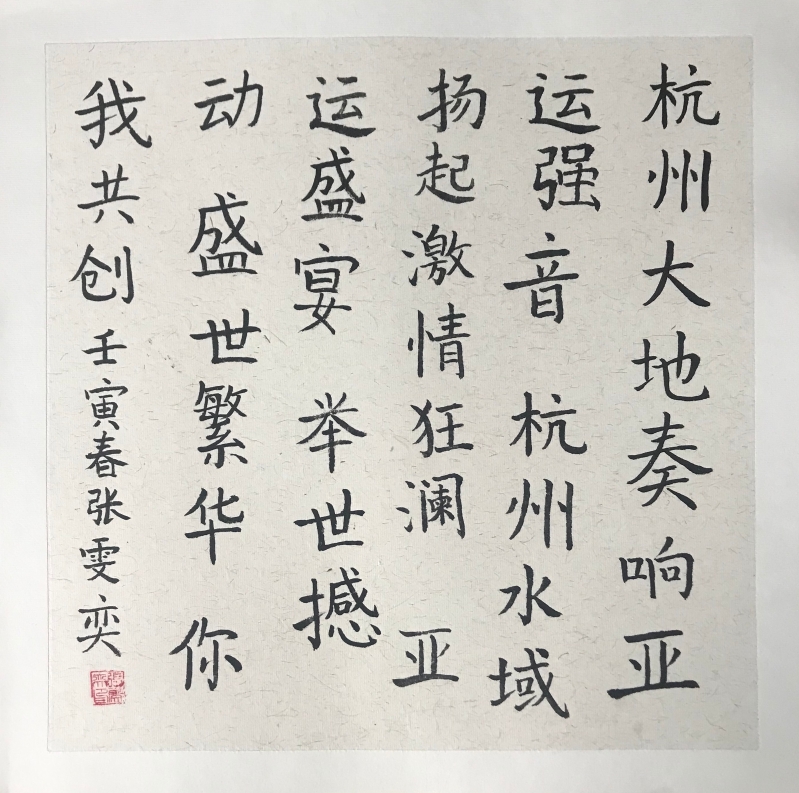 杭州大地奏响亚
运强音 杭州水域
扬起激情狂澜 亚
运盛宴 举世撼
动 盛世繁华 你
我共创 壬寅春张雯奕